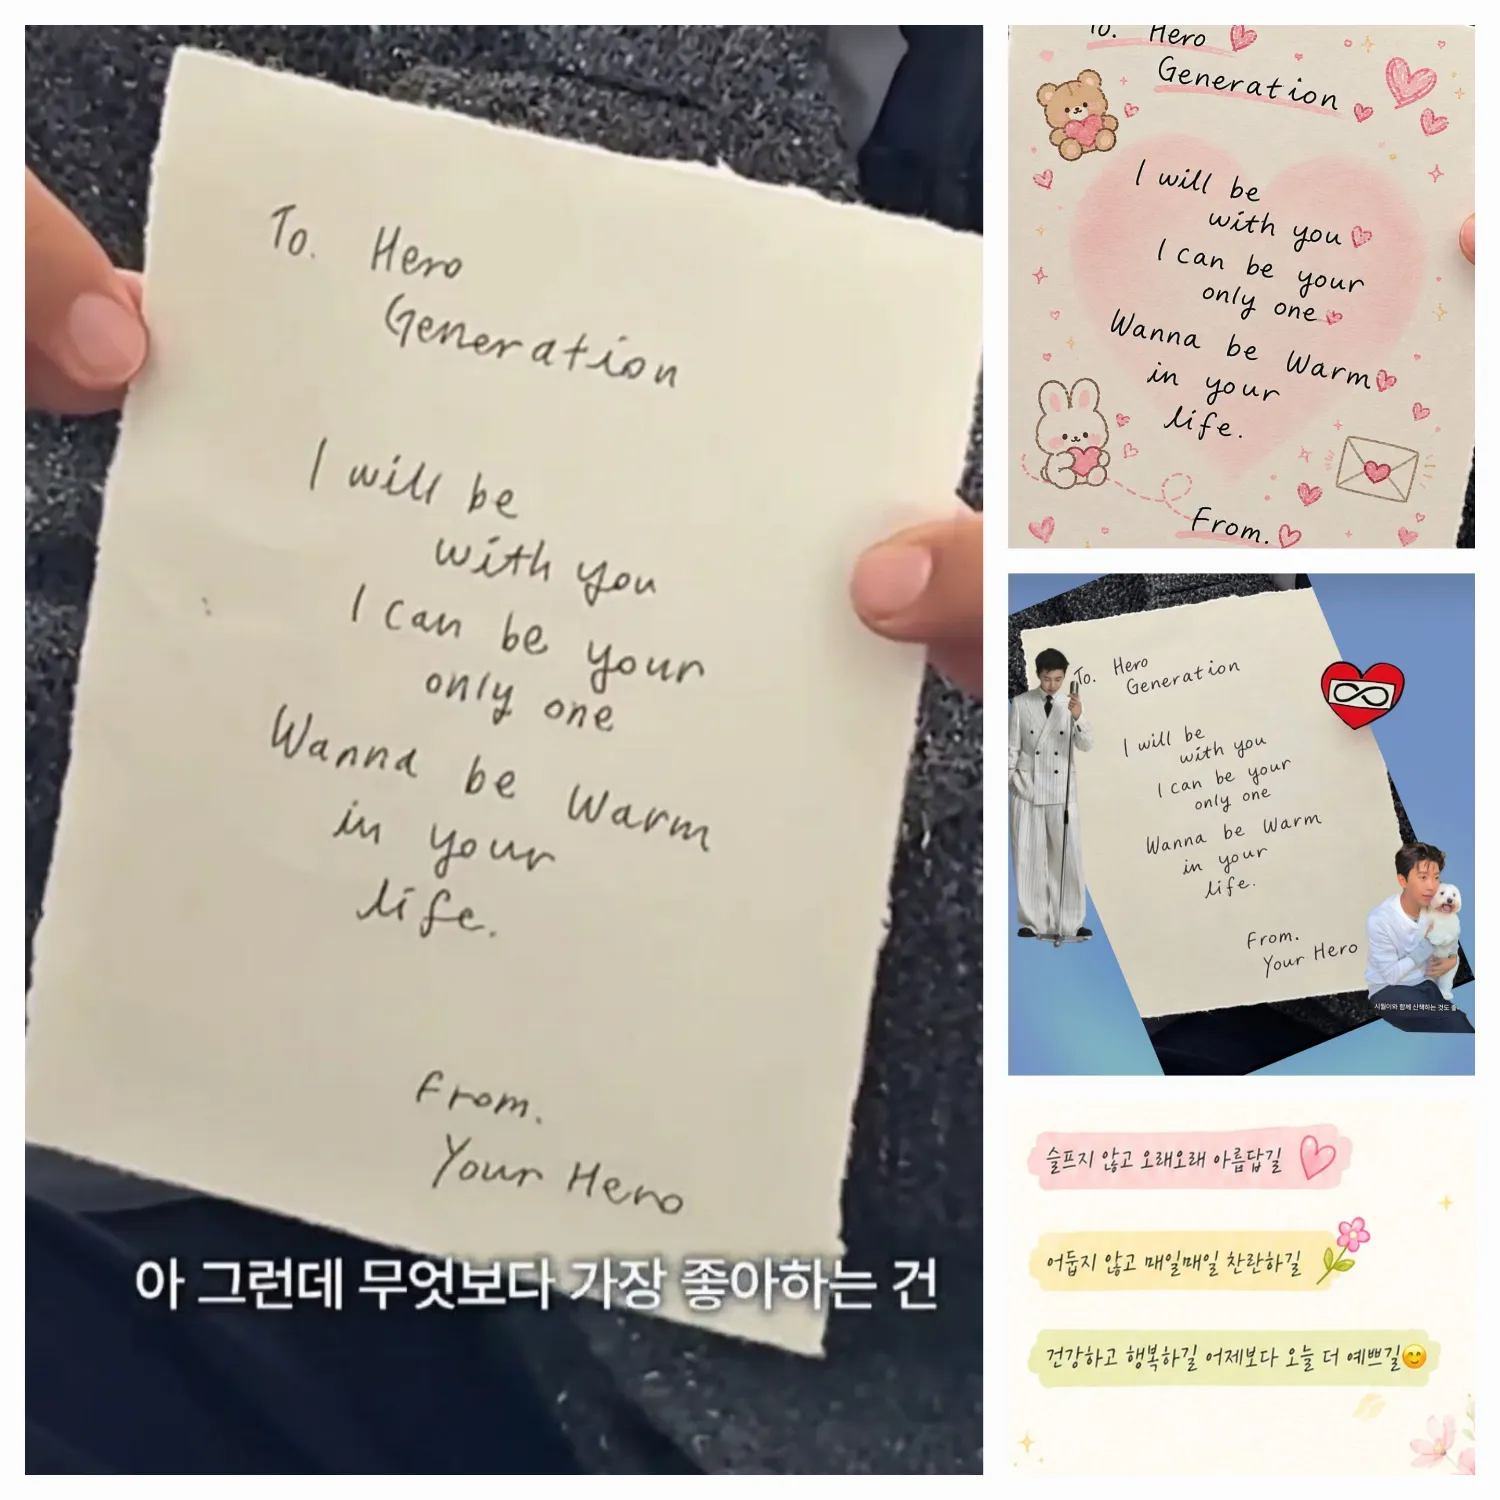 To. Hero
Generation
I will be
with you
I can be your
only one
Wanna be Warm
in your
life.
From.
Your Hero
아 그런데 무엇보다 가장 좋아하는 건
To. Hero
Generation
I will be
with you
I can be your
only one
Wanna be Warm
in your
life.
From.
To. Hero
Generation
I will be
with you
I can be your
only one
Wanna be Warm
in your
life.
From.
Your Hero
시월이와 함께 산책하는 것도 좋
슬프지 않고 오래오래 아름답길
어둡지 않고 매일매일 찬란하길
건강하고 행복하길 어제보다 오늘 더 예쁘길